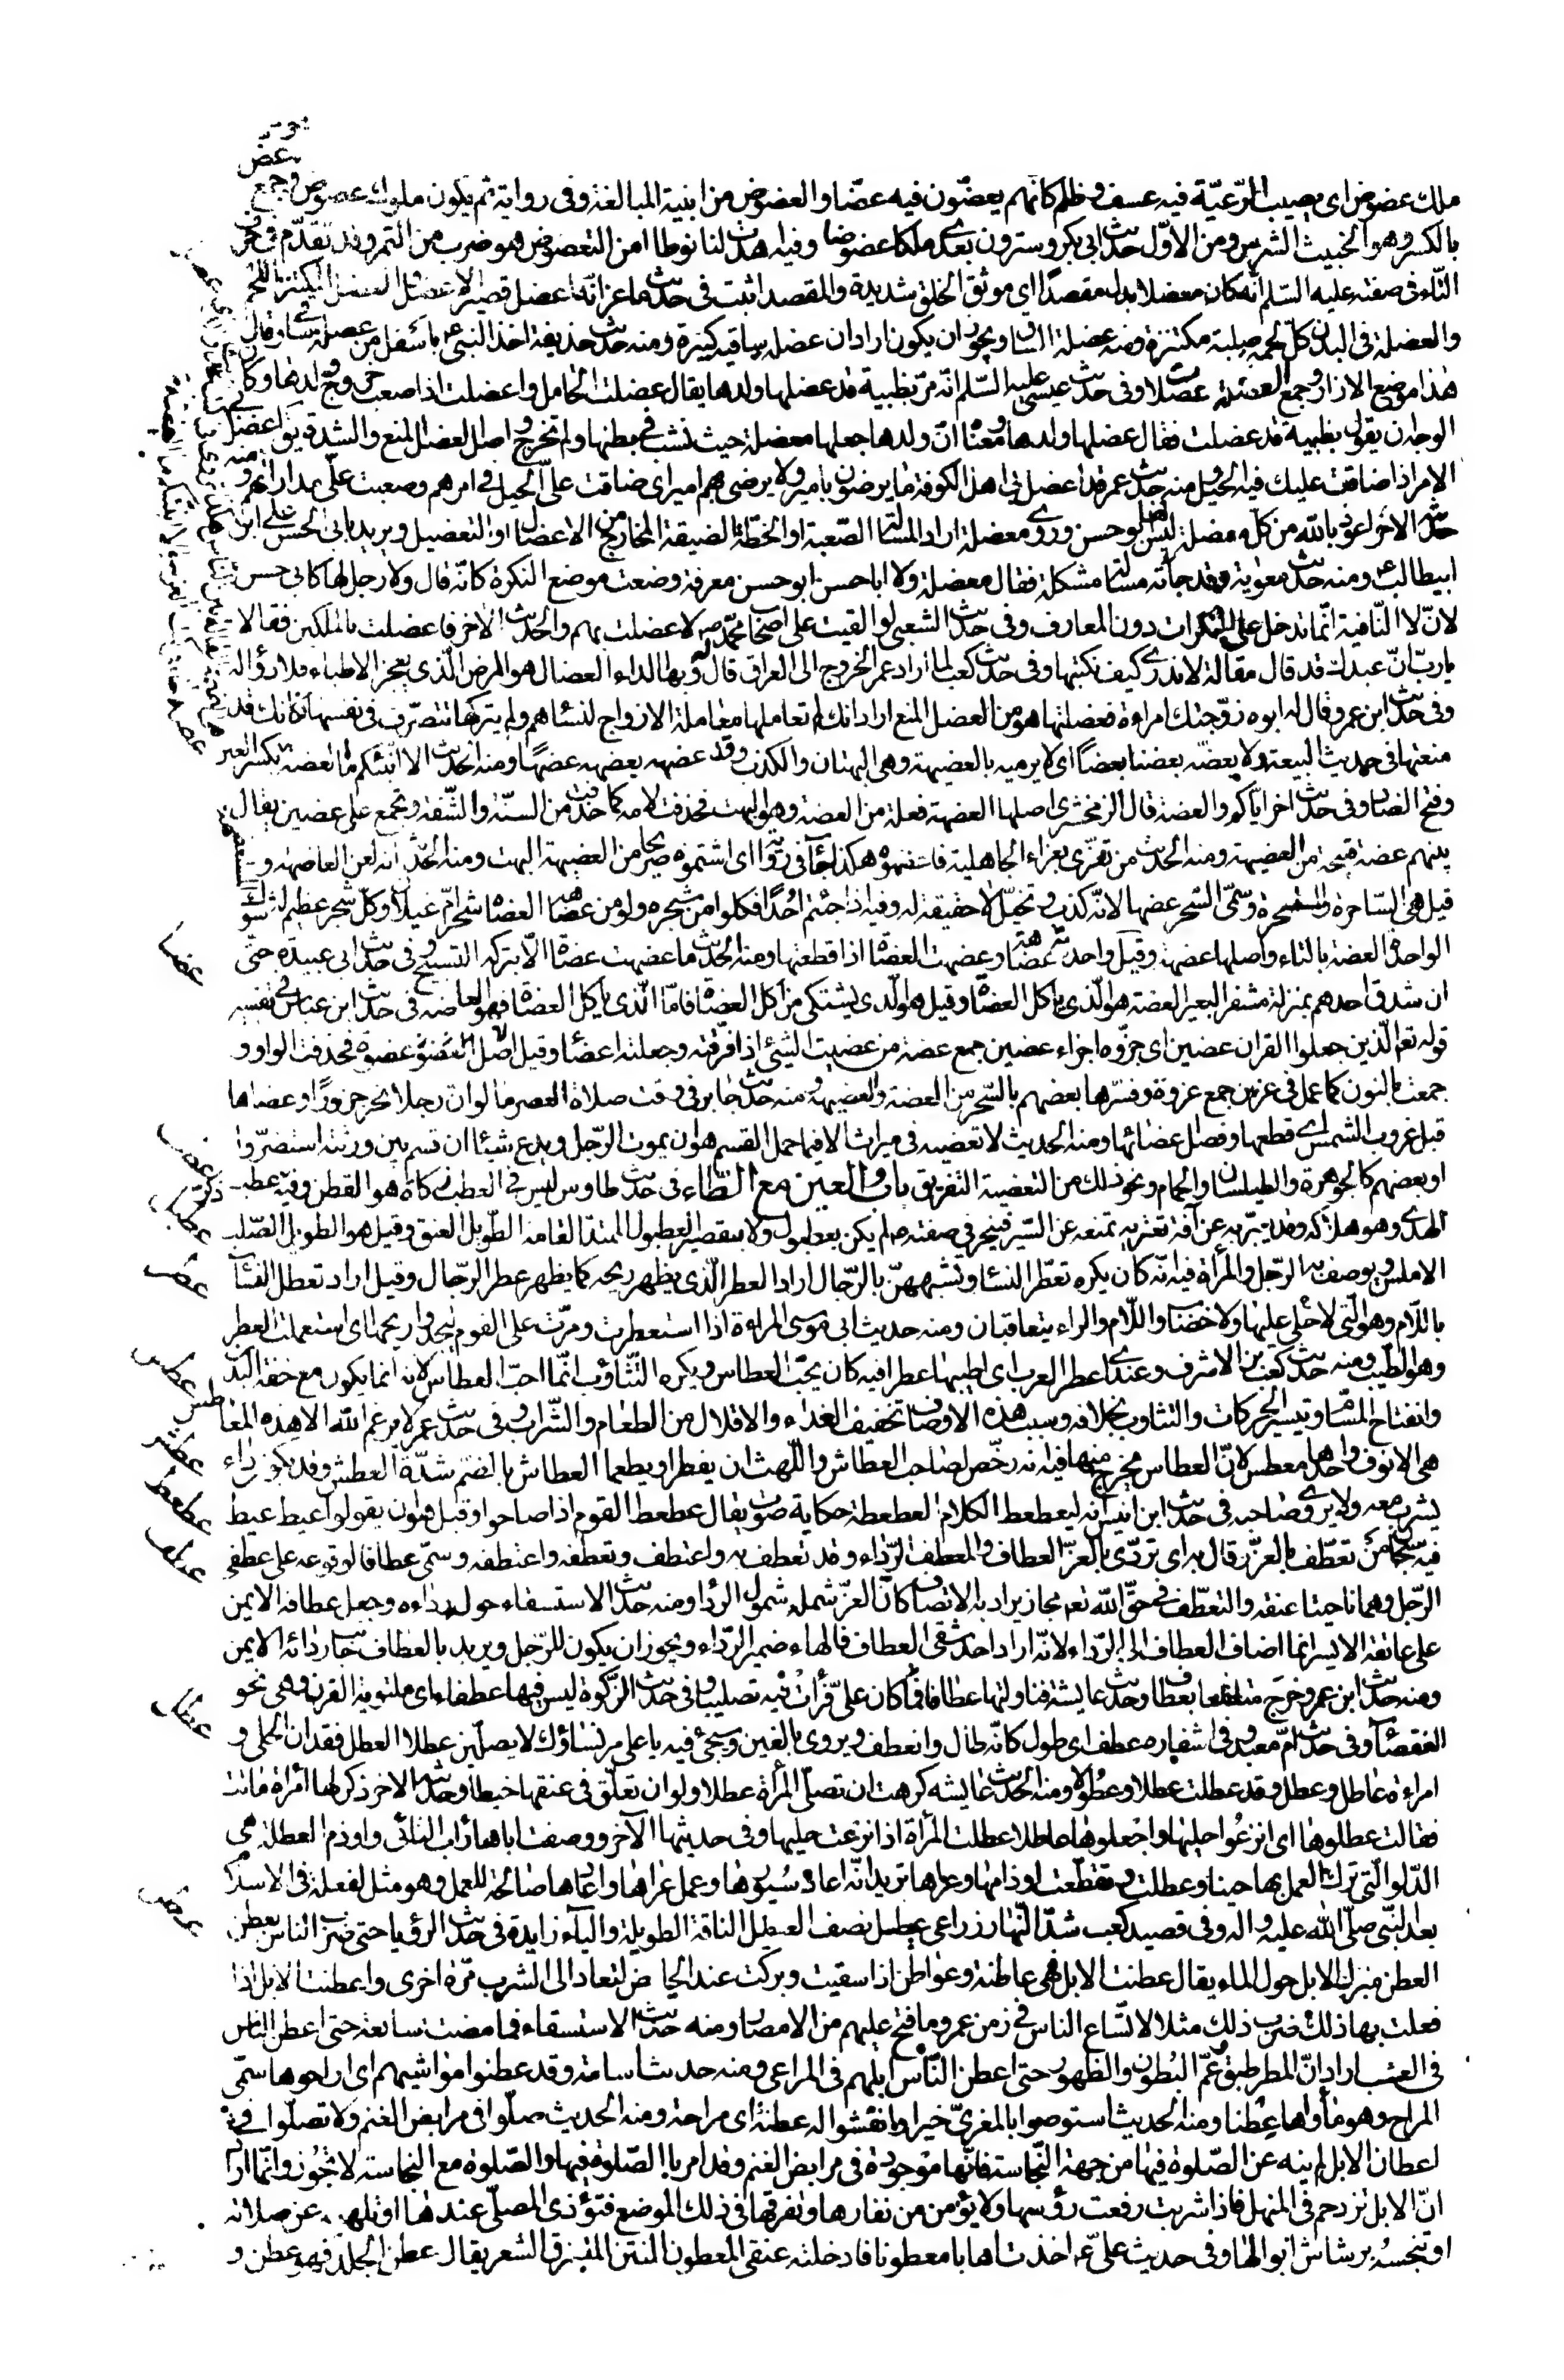 ملك عضوض اى يصيب الرّعيّة فيه عسف وظلم كانّهم يعضّون فيه عضّا والعضوض من ابنية المبالغة وفى رواية ثم يكون ملوك عضوض وجمع
بالكسر وهو الخبيث الشرس ومن الاوّل حديث ابى بكر وسترون بعدى ملكا عضوضا وفيه اهدت لنا نوطا من التعضوض هو ضرب من التمر وقد تقدّم فى حرف
التّاء فى صفته عليه السّلم انّه كان معضلا بدل مقصدًا اى موثق الخلق شديده والمقصد اثبت فى حديث ماعز انّه اعضل قصير الاعضل العضل المكتنز اللحم
والعضلة فى البدن كلّ لحمة صلبة مكتنزة ومنه عضلة الساق ويجوز ان يكون اراد ان عضلة ساقيه كبيرة ومنه حديث حذيفة اخذ النبى ع باسفل من عضلة ساقى وقال
هذا موضع الازار وجمع العضلة عضلات وفى حديث عيسى عليه السّلم انّه مرّ بظبية قد عضلها ولدها يقال عضلت الحامل واعضلت اذا صعب خروج ولدها وكان
الوجه ان يقول بظبية قد عضلت فقال عضلها ولدها ومعناه انّ ولدها جعلها معضلة حيث نشب فى بطنها ولم تخرج واصل العضل المنع والشدة يقال اعضل
الامر اذا ضاقت عليك فيه الحيل ومنه حديث عمر قد اعضل بى اهل الكوفة ما يرضون بامير ولا يرضى بهم امير اى ضاقت علىّ الحيل فى امرهم وصعبت علىّ مداراتهم ومنه
حديثه الاخر اعوذ بالله من كلّ معضلة ليس لها ابو حسن وروى معضلة اراد المسئلة الصّعبة او الخطّة الضيقة المخارج من الاعضال او التعضيل ويريد بابى الحسن على ابن
ابيطالب ع ومنه حديث معوية وقد جاءته مسئلة مشكلة فقال معضلة ولا ابا حسن ابو حسن معرفة وضعت موضع النكرة كانّه قال ولا رجل لها كابى حسن
لانّ لا النّافية انّما تدخل على النكرات دون المعارف وفى حديث الشعبى لو القيت على اصحاب محمّد ص لاعضلت بهم والحديث الاخر فاعضلت بالملكين فقالا
يا ربّ انّ عبدك قد قال مقالة لا ندرى كيف نكتبها وفى حديث كعب لما اراد عمر الخروج الى العراق قال له وبها الداء العضال هو المرض الّذى يعجز الاطباء فلا دواء له
وفى حديث ابن عمر وقال له ابوه زوّجتك امراءة فعضلتها هو من العضل المنع اراد انك لم تعاملها معاملة الازواج لنسائهم ولم تتركها تتصرّف فى نفسها فكانك قد
منعتها فى حديث البيعة ولا يعضه بعضنا بعضاً اى لا يرميه بالعضيهة وهى البهتان والكذب وقد عضهه يعضهه عضهًا ومنه الحديث الا انبئكم ما العضة بكسر العين
وفتح الضاد وفى حديث اخر ايّاكم والعضة قال الزمخشرى اصلها العضهة فعلة من العضة وهو البهت فحذفت لامه كما حذفت من السنة والشّفة وتجمع على عضين يقال
بينهم عضة قبيحة من العضيهة ومنه الحديث من تعزّى بعزاء الجاهلية فاعضهوه هكذا جاء فى رواية اى اشتموه صريحا من العضيهة البهت ومنه الحديث انه لعن العاضهة و
قيل هى السّاحرة والمستسحرة وسمّى السّحر عضها لانّه كذب وتخيّل لا حقيقة له وفيه اذا جئتم احُدًا فكلوا من شجره ولو من عضاهه العضاه شجر امّ غيلان وكلّ شجر عظيم له شوك
الواحدة العضة بالتاء واصلها عضهة وقيل واحدته عضاهة وعضهت العضاه اذا قطعتها ومنه الحديث ما عضهت عضاة الّا بتركه التسبيح وفى حديث ابى عبيدة حتّى
ان شدق احدهم بمنزلة مشفر البعير العضه هو الّذى ياكل العضاه وقيل هو الّذى يشتكى من اكل العضاه فامّا الّذى ياكل العضاه فهو العاضه فى حديث ابن عباس فى تفسير
قوله تعم الّذين جعلوا القران عضين اى جزّوه اجزاء عضين جمع عضة من عضيت الشيئ اذا فرّقته وجعلته اعضاء وقيل الاصل عضوة فحذفت الواو و
جمعت بالنون كما عمل فى عزين جمع عزوة وفسّرها بعضهم بالسّحر من العضة والعضيهة ومنه حديث جابر فى وقت صلاة العصر ما لو ان رجلا نحر جزورًا وعضاها
قبل غروب الشمس اى قطعها وفصل اعضائها ومنه الحديث لا تعضيه فى ميراث الا فيما حمل القسم هو ان يموت الرّجل ويدع شيئا ان قسم بين ورثته استضرّوا
او بعضهم كالجوهرة والطيلسان والحمام ونحو ذلك من التعضية التفريق باب العين مع الطّاء فى حديث طاوس ليس فى العطب زكاة هو القطن وفيه ذكر عطب
الهدى وهو هلاكه وقد يعبّر به عن آفة تعتريه تمنعه عن السّير فينحر فى صفته ص لم يكن بعطبول ولا بقصير العطبول الممتدّ القامة الطّويل العنق وقيل هو الطويل الصّلب
الاملس ويوصف به الرّجل والمرأة فيه انّه كان يكره تعطّر النساء وتشبههنّ بالرّجال اراد العطر الّذى يظهر ريحه كما يظهر عطر الرّجال وقيل اراد تعطل النساء
باللّام وهى التى لا حلى عليها ولا خضاب واللّام والراء يتعاقبان ومنه حديث ابى موسى المراءة اذا استعطرت ومرّت على القوم ليجدوا ريحها اى استعملت العطر
وهو الطيب ومنه حديث كعب بن الاشرف وعندى اعطر العرب اى اطيبها عطرا فيه كان يحبّ العطاس ويكره التّثاؤب انّما احبّ العطاس لانّه انما يكون مع خفة البدن
وانفتاح المسام وتيسير الحركات والتثاوب بخلافه وسبب هذه الاوصاف تخفيف الغذاء والاقلال من الطعام والشّراب وفى حديث عمر لا يرغم الله الا هذه المعاطس
هى الانوف واحدها معطس لانّ العطاس يخرج منها فيه انّه رخّص لصاحب العطاش واللّهث ان يفطرا ويطعما العطاش بالضم شدّة العطش وقد يكون داء
يشرب معه ولا يروى صاحبه فى حديث ابن انيس انّه ليعطعط الكلام العطعطة حكاية صوت يقال عطعط القوم اذا صاحوا وقيل هو ان يقولوا عيط عيط
فيه سبحان من تعطّف بالعزّ وقال به اى تردّى بالعزّ العطاف والمعطف الرّداء وقد تعطف به واعتطف وتعطفه واعتطفه وسمّى عطافا لوقوعه على عطفى
الرّجل وهما ناحيتا عنقه والتعطّف فى حقّ الله تعم مجاز يراد به الاتصاف كانّ العزّ شمله شمول الرداء ومنه حديث الاستسقاء حول رداءه وجعل عطافه الايمن
على عاتقه الايسر انما اضاف العطاف الى الرّداء لانّه اراد احد شقى العطاف فالهاء ضمير الرّداء ويجوز ان يكون للرّجل ويريد بالعطاف جانب ردائه الايمن
ومنه حديث ابن عمر وخرج متلفعا بعطاف وحديث عايشة فناولتها عطافا كان علىّ فرأت فيه تصليبا وفى حديث الزّكوة ليس فيها عطفاء اى ملتوية القرن وهى نحو
العقصاء وفى حديث امّ معبد وفى اشفاره عطف اى طول كانّه طال وانعطف ويروى بالغين وسيجئ فيه يا على مر نساؤك لا يصلّين عطلا العطل فقدان الحلى و
امراءة عاطل وعطل وقد عطلت عطلا وعطولا ومنه الحديث عايشه كرهت ان تصلّى المرأة عطلا ولو ان تعلّق فى عنقها خيطا وحديثها الاخر ذكر لها امرأة ماتت
فقالت عطلوها اى انزعُوا حليها واجعلوها عاطلا عطلت المرأة اذا نزعت حليها وفى حديثها الآخر ووصفت اباها رأب الثاى واوذم العطلة هى
الدّلو الّتى ترك العمل بها حينا وعطلت وتقطّعت اوذامها وعراها تريد انّه اعاد سُيورها وعمل عراها واعادها صالحة للعمل وهو مثل لفعله فى الاسلام
بعد النّبى صلّى الله عليه واله وفى قصيد كعب شدّ النّهار ذراعى عيطل نصف العيطل الناقة الطويلة والياء زايدة فى حديث الرؤيا حتى ضرب الناس بعطن
العطن مبرك الابل حول الماء يقال عطنت الابل فهى عاطنة وعواطن اذا سقيت وبركت عند الحياض لتعاد الى الشرب مرّة اخرى واعطنت الابل اذا
فعلت بها ذلك ضرب ذلك مثلا لاتّساع الناس فى زمن عمر وما فتح عليهم من الامصار ومنه حديث الاستسقاء فما مضت سابعة حتى اعطن الناس
فى العشب اراد انّ المطر طبّق وعمّ البُطون والظهور حتى اعطن النّاس ابلهم فى المراعى ومنه حديث اسامة وقد عطنوا مواشيهم اى اراحوها سمّى
المراح وهو مأواها عطنا ومنه الحديث استوصوا بالمعزى خيرا وانقشوا له عطنه اى مراحه ومنه الحديث صلّوا فى مرابض الغنم ولا تصلّوا فى
اعطان الابل لم ينه عن الصّلوة فيها من جهة النّجاسة فانّها موجودة فى مرابض الغنم وقد امر بالصّلوة فيها والصّلوة مع النجاسة لا تجُوز وانّما اراد
انّ الابل تزدحم فى المنهل فاذا شربت رفعت رؤسها ولا يؤمن من نفارها وتفرقها فى ذلك الموضع فتؤذى المصلّى عندها او تلهيه عن صلاته
او تنجسُه برشاش ابوالها وفى حديث علىّ ع اخذت اهابا معطونا فادخلته عنقى المعطون المنتن المنمرق الشعر يقال عطن الجلد فهو عطن و
عضا
عضب
عطب
عطر
عطس
عطش
عطعط
عطف
عطل